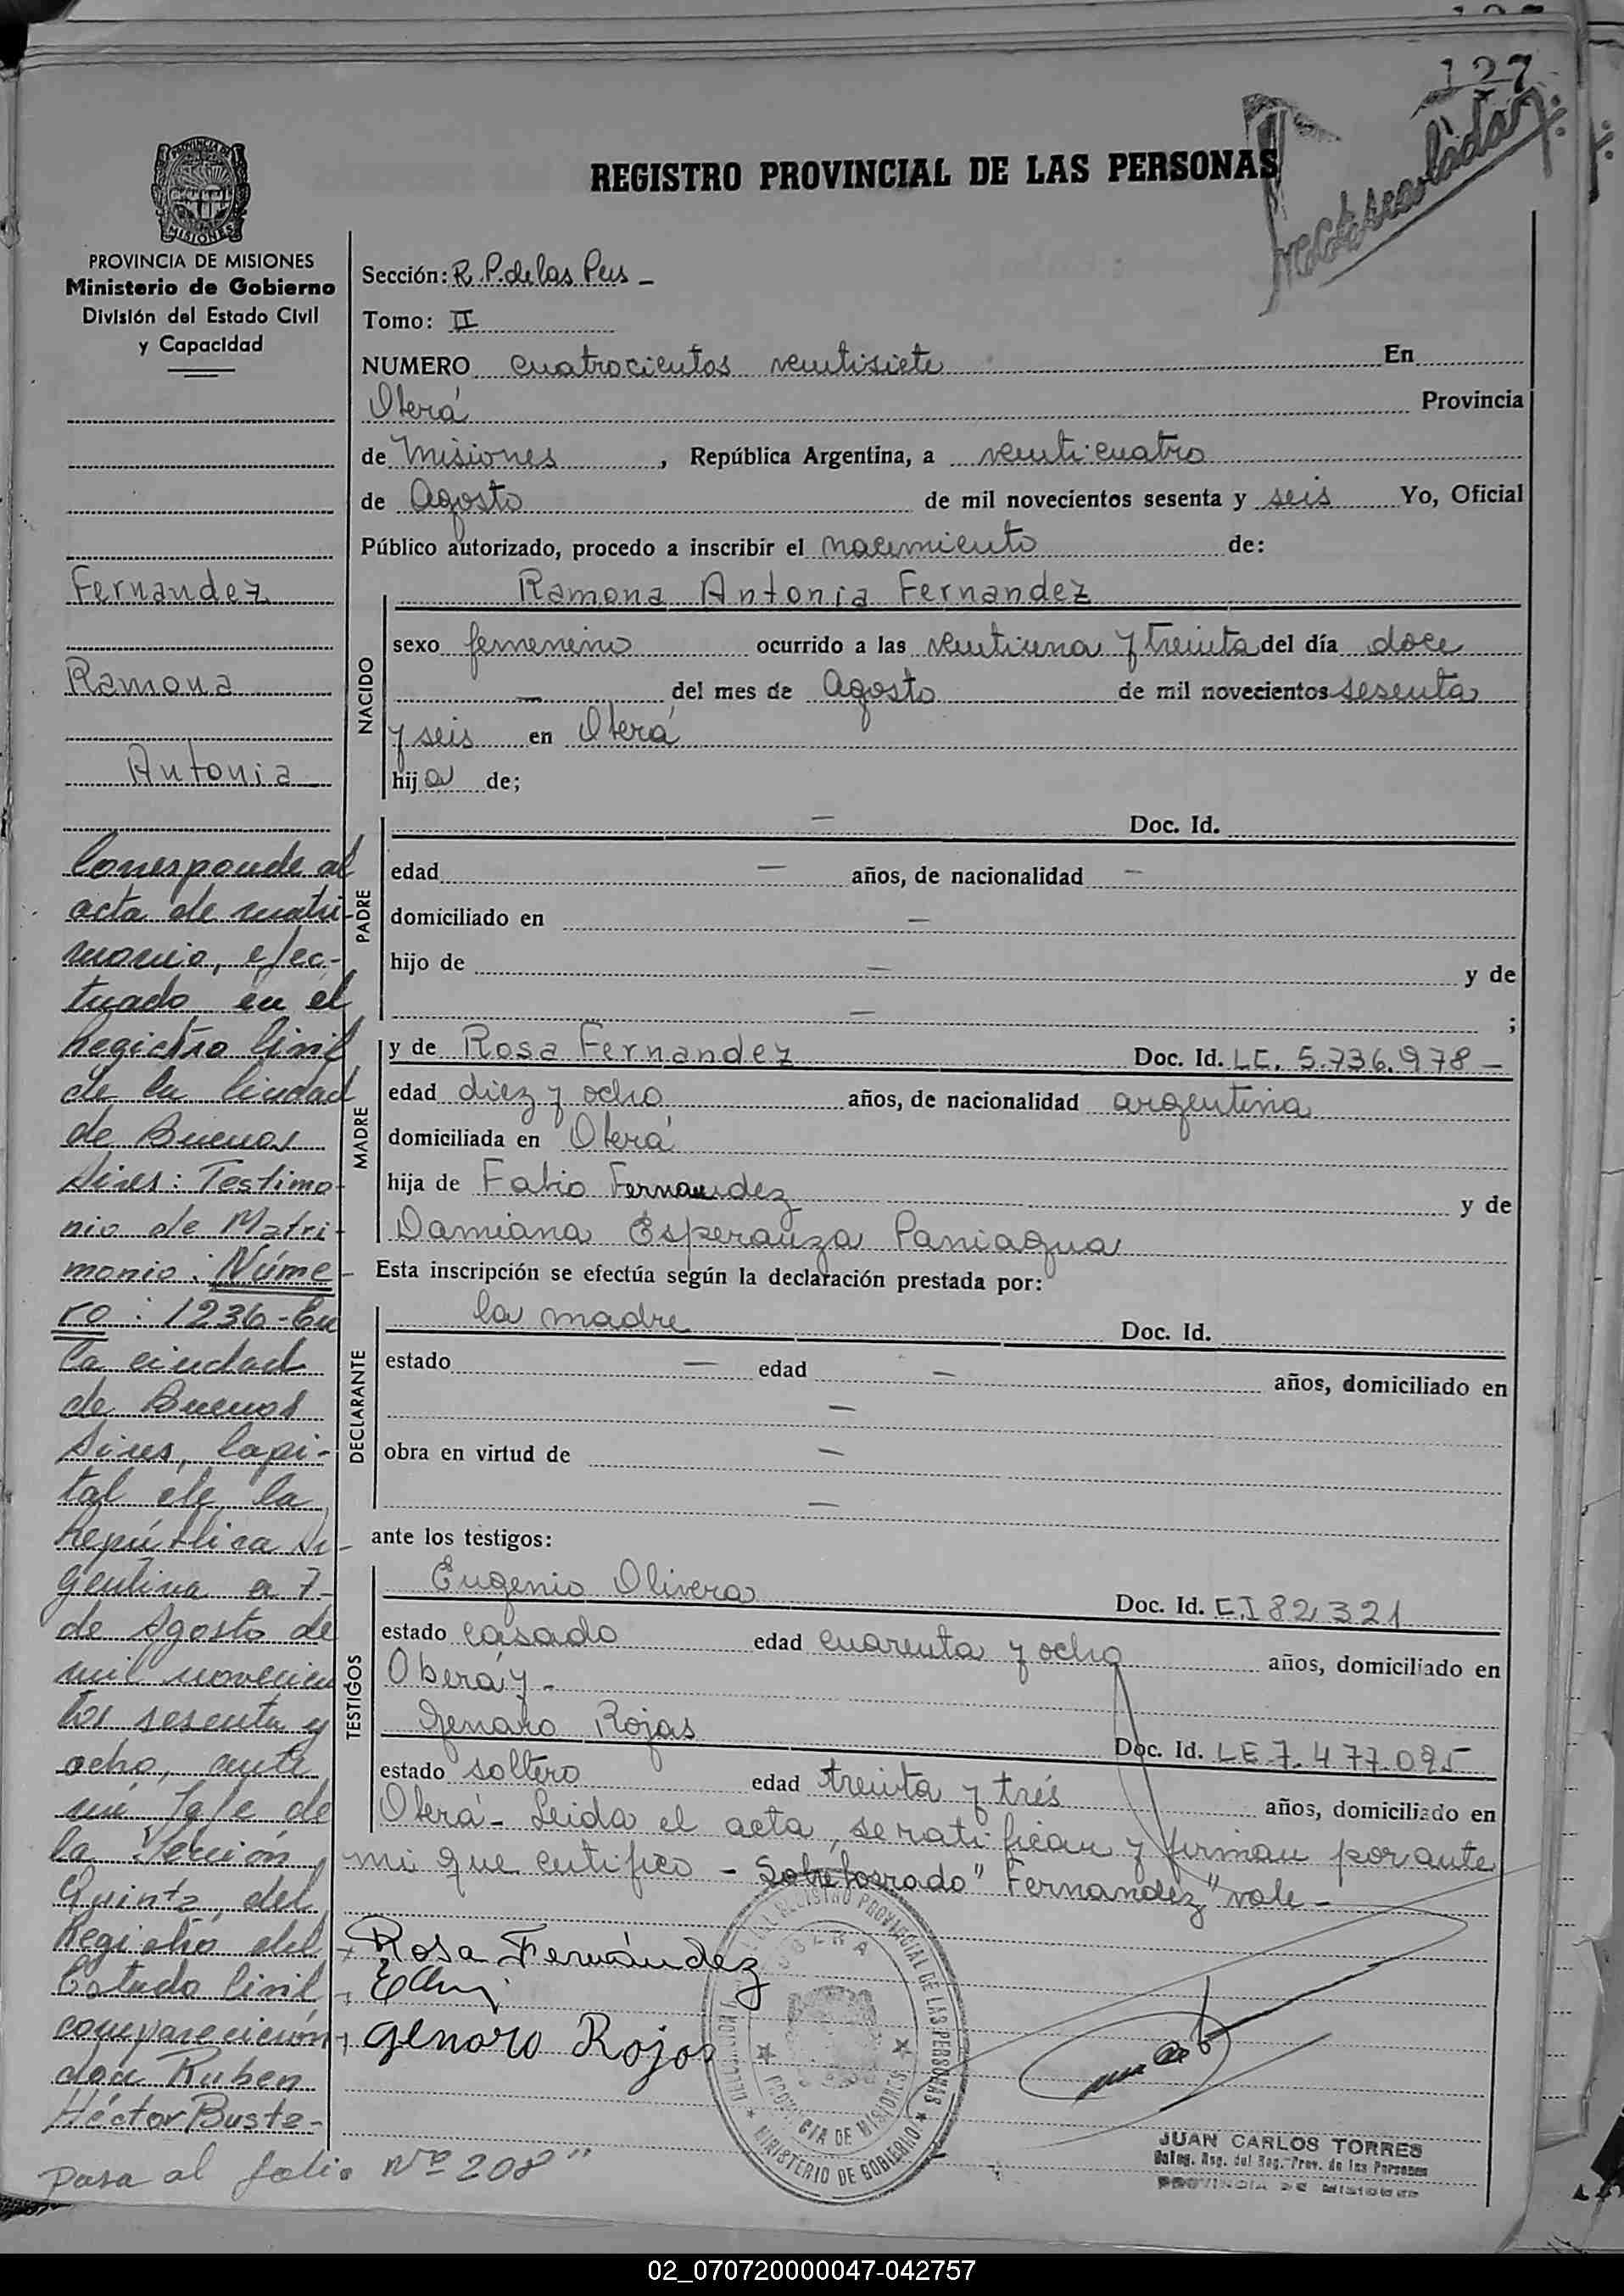 127
REGISTRO PROVINCIAL DE LAS PERSONAS
PROVINCIA DE MISIONES
Ministerio de Gobierno
División del Estado Civil
y Capacidad
Fernandez
Ramona
Antonia
Corresponde al
acta de matri-
monio, efec-
tuado en el
Registro Civil
de la Ciudad
de Buenos
Aires: Testimo-
nio de Matri-
monio: Núme-
ro: 1236-En
la ciudad
de Buenos
Aires, Capi-
tal de la
República Ar-
gentina a 7-
de Agosto de
mil novecien
tos sesenta y
ocho, ante
mi Jefe de
la Sección
Quinta, del
Registro del
Estado Civil
comparecieron
don Ruben
Héctor Busta-
pasa al folio Nº 208"
Sección: R.P. de las Pers -
Tomo: II
NUMERO cuatrocientos veintisiete En
Oberá Provincia
de Misiones, República Argentina, a veinticuatro
de Agosto de mil novecientos sesenta y seis Yo, Oficial
Público autorizado, procedo a inscribir el nacimiento de:
NACIDO
Ramona Antonia Fernandez
sexo femenino ocurrido a las veintiuna y treinta del día doce
— del mes de Agosto de mil novecientos sesenta
y seis en Oberá
hija de;
PADRE
— Doc. Id.
edad — años, de nacionalidad —
domiciliado en —
hijo de — y de
— ;
MADRE
y de Rosa Fernandez Doc. Id. LC. 5.736.978 -
edad diez y ocho años, de nacionalidad argentina
domiciliada en Oberá
hija de Fabio Fernandez y de
Damiana Esperanza Paniagua
Esta inscripción se efectúa según la declaración prestada por:
DECLARANTE
la madre Doc. Id.
estado — edad — años, domiciliado en
—
obra en virtud de —
—
ante los testigos:
TESTIGOS
Eugenio Olivera Doc. Id. CI 82321
estado casado edad cuarenta y ocho años, domiciliado en
Oberá y -
Genaro Rojas Doc. Id. LE 7.477.095
estado soltero edad treinta y trés años, domiciliado en
Oberá - Leida el acta, se ratifican y firman por ante
mi que certifico - Sobreborrado "Fernandez" vale -
Rosa Fernández
genaro Rojas
REGISTRO PROVINCIAL DE LAS PERSONAS
OBERA
PROVINCIA DE MISIONES
MINISTERIO DE GOBIERNO
JUAN CARLOS TORRES
Deleg. Reg. del Reg. Prov. de las Personas
PROVINCIA DE MISIONES
02_070720000047-042757